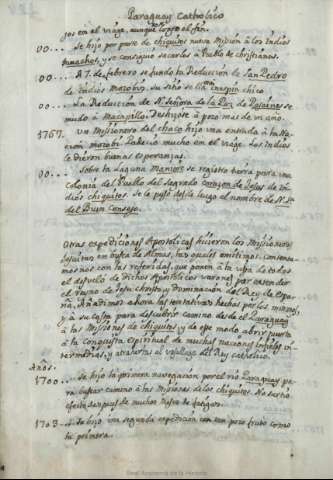 Paraguay Catholico
jos en el viaje, aunque logró el fin.
00... Se hizo por parte de chiquitos nueva Mission à los Indios
y se consiguió sacarlos à Pueblo de christianos.
00... A 7. de febrero se fundó la Reduccion de San Pedro
de Indios Mocobis, su sitio se llama inspin chico.
00... La Reduccion de Nª Señora de la Paz de se
mudó à Macapillo. Deshizose à poco mas de un año.
1767. Un Missionero del chaco hizo una entrada à la Na-
cion mocobi. Padeció mucho en el viage. Los Indios
le dieron buenas esperanzas.
00... Sobre la Laguna Mamoré se registró tierra para una
colonia del Pueblo del Sagrado Corazon de Jesus de In-
dios chiquitos. Se le puso desde luego el nombre de Nª Sª
del Buen Consejo.
Otras expediciones Apostolicas hicieron los Missioneros
Jesuitas en busca de Almas, las quales omitimos, contentan-
donos con las referidas, que ponen à la vista de todos
el desvelo de dichos Apostolicos varones por extender
el reyno de Jesu-christo y dominacion del Rey de Espa-
ña. Añadimos ahora las tentativas hechas por los mismos,
y à su costa para descubrir camino desde el Paraguay
à las Missiones de chiquitos y de ese modo abrir puerta
à la conquista espiritual de muchas naciones infieles in-
termedias, y atraherlas al vasallage del Rey catholico.
Años.
1700... Se hizo la primera navegacion por el rio Paraguay pa-
ra buscar camino à las Missiones de los chiquitos. No surtió
efecto despues de muchos meses de fatigas.
1703... Se hizo una segunda expedicion con tan poco fruto como
la primera.
Real Academia de la Historia